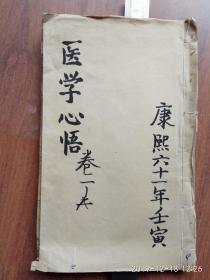 康熙六十一年壬寅
医学心悟
卷一
2019-12-18 12:26